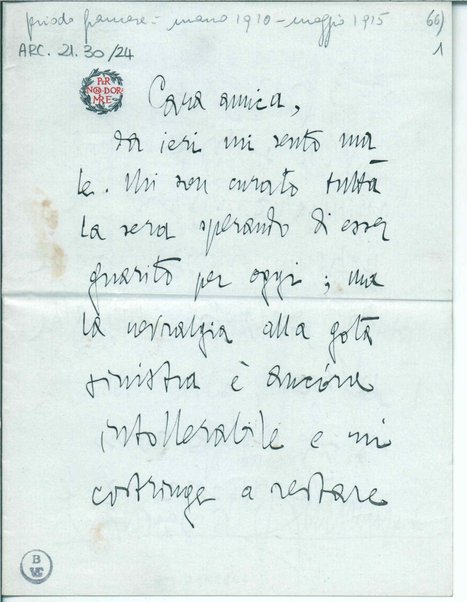 periodo francese - marzo 1910 - maggio 1915
66)
1
ARC. 21.30/24
PER
NON DOR
MIRE
Cara amica,
da ieri mi sento ma
le. Mi son curato tutta
la sera sperando di esser
guarito per oggi; ma
la nevralgia alla gota
sinistra è ancóra
intollerabile e mi
costringe a restare
B